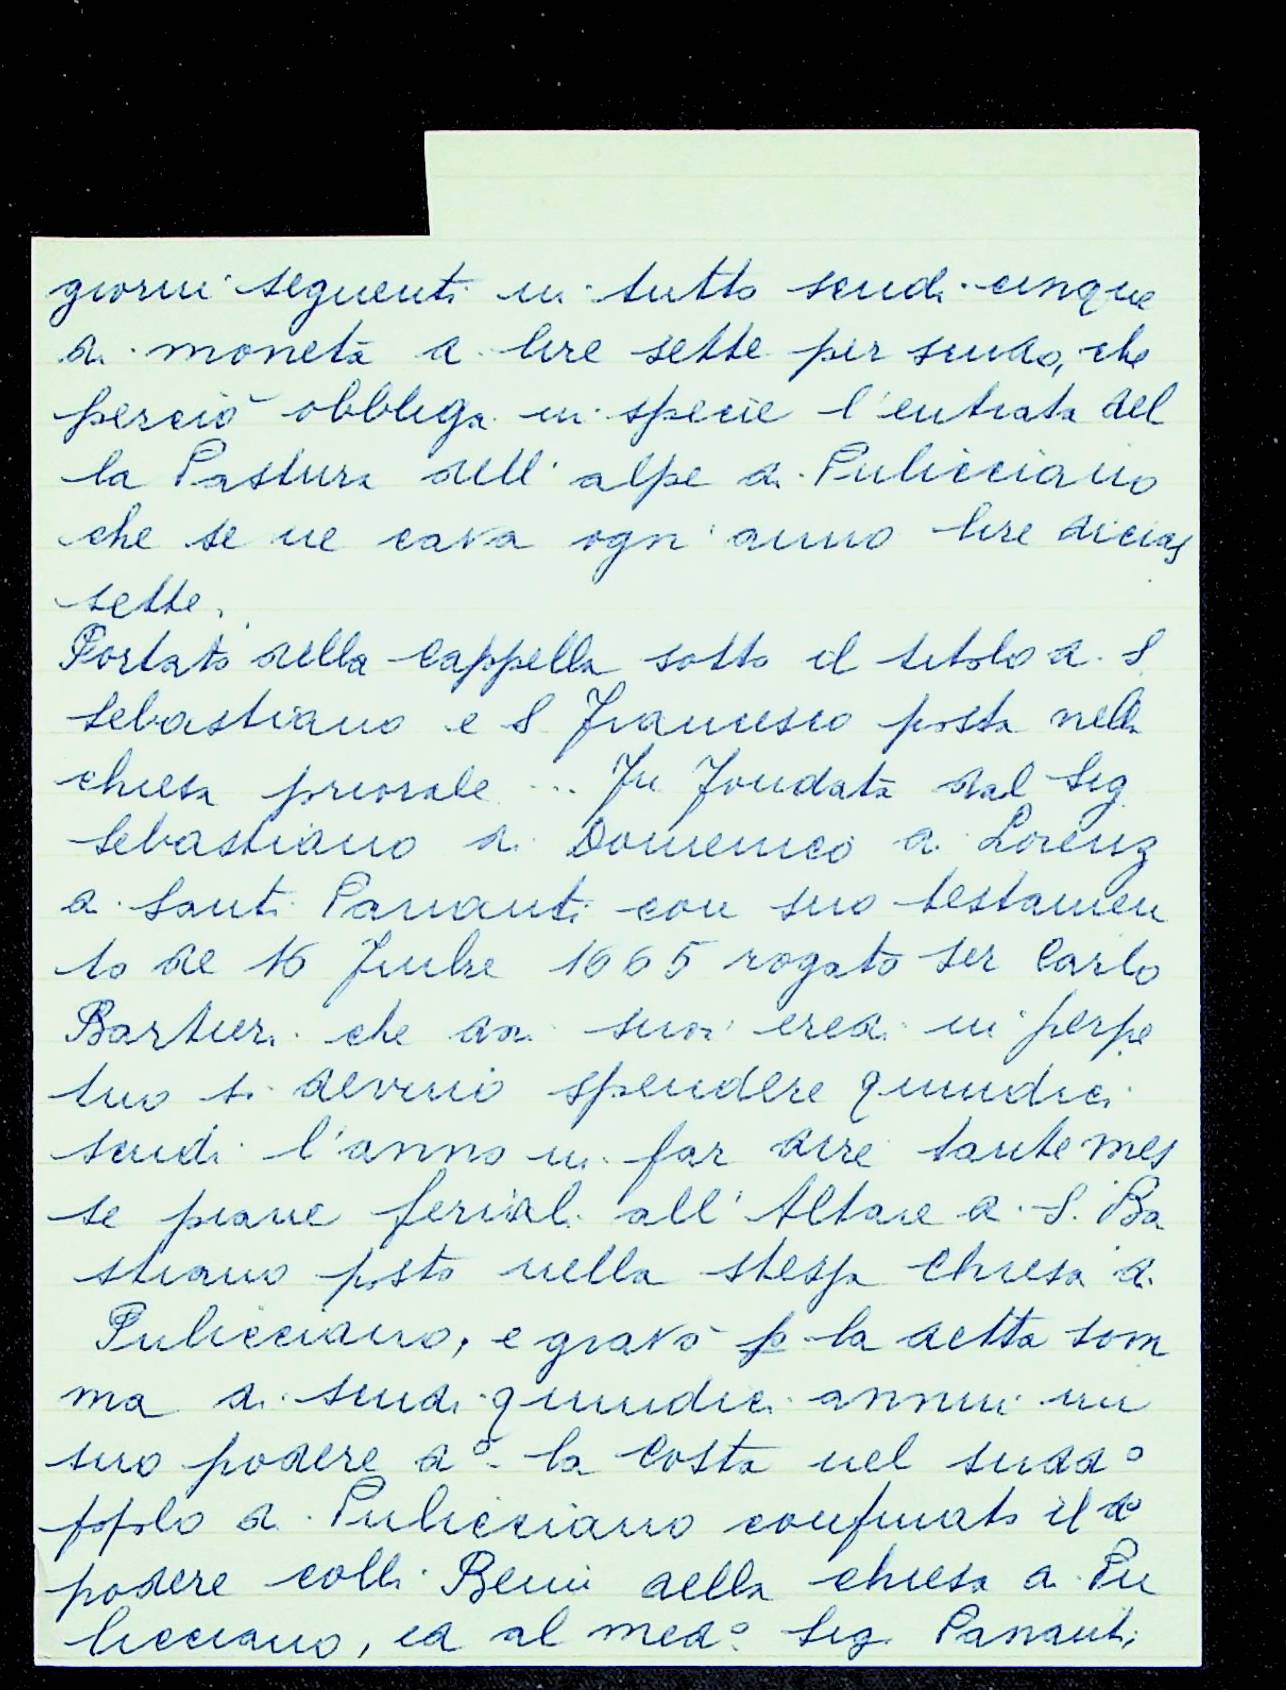 giorni seguenti in tutto scudi cinque
di moneta a lire sette per scudo, che
perciò obbliga in specie l'entrata del
la Pastura dell'alpe di Pulicciano
che se ne cava ogni anno lire dicias
sette.
Portato della Cappella sotto il titolo di S
Sebastiano e S Francesco posta nella
chiesa priorale ... Fu fondata dal Sig
Sebastiano di Domenico di Lorenz
di Santi Pananti con suo testamen
to de 16 1665 rogato Ser Carlo
che dai suoi eredi in perpe
tuo si devino spendere quindici
scudi l'anno in far dire tante mes
se piane feriali all'Altare di S. Ba
stiano posto nella stessa Chiesa di
Pulicciano, e gravò p la detta som
ma di scudi quindici annui un
suo podere d° la Costa nel sudd°
popolo di Pulicciano confinato il d°
podere colli Beni della chiesa di Pu
licciano, ed al med° Sig. Pananti